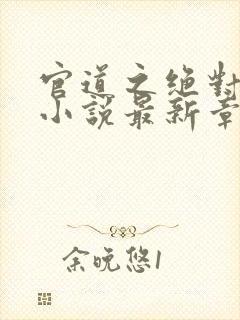 官道之绝對
小說最新章
余晚悠1